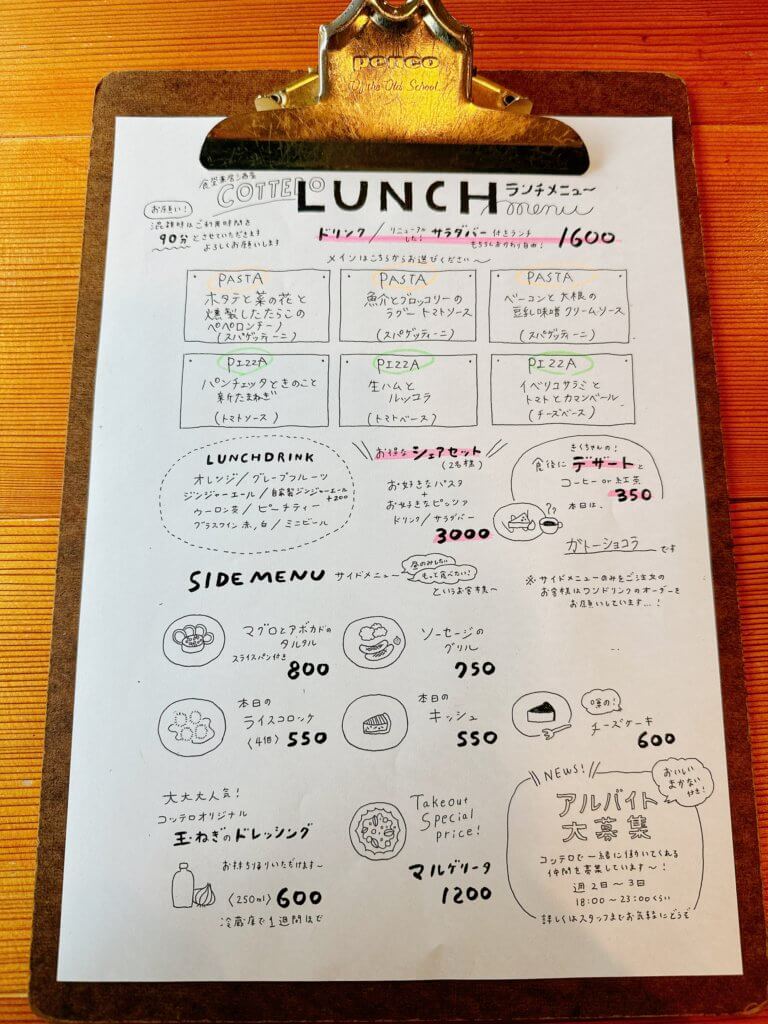 penco
Of the Old School.
食堂兼居酒屋
COTTERO
LUNCH
ランチメニュー
menu
お願い!
混雑時はご利用時間を
90分とさせていただきます
よろしくお願いします
ドリンク/リニューアルした!サラダバー付きランチ 1600
もちろんおかわり自由!
メインはこちらからお選びください〜
PASTA
ホタテと菜の花と
燻製したたらこの
ペペロンチーノ
(スパゲッティーニ)
PASTA
魚介とブロッコリーの
ラグー トマトソース
(スパゲッティーニ)
PASTA
ベーコンと大根の
豆乳味噌クリームソース
(スパゲッティーニ)
PIZZA
パンチェッタときのこと
新たまねぎ
(トマトソース)
PIZZA
生ハムと
ルッコラ
(トマトベース)
PIZZA
イベリコサラミと
トマトとカマンベール
(チーズベース)
LUNCH DRINK
オレンジ/グレープフルーツ
ジンジャーエール/自家製ジンジャーエール
+200
ウーロン茶/ピーチティー
グラスワイン 赤,白/ミニビール
お得なシェアセット
(2名様)
お好きなパスタ
+
お好きなピッツァ
ドリンク/サラダバー
3000
きくちゃんの!
食後にデザートと
コーヒー or 紅茶
350
??
本日は、
ガトーショコラです
SIDE MENU サイドメニュー
昼のみしたい
もっと食べたい!
というお客様〜
※サイドメニューのみをご注文の
お客様はワンドリンクのオーダーを
お願いしています…!
マグロとアボカドの
タルタル
スライスパン付き
800
ソーセージの
グリル
750
本日の
ライスコロッケ
〈4個〉 550
本日の
キッシュ
550
噂の!
チーズケーキ
600
大大大人気!
コッテロオリジナル
玉ねぎのドレッシング
お持ち帰りいただけます〜
〈250ml〉 600
冷蔵庫で1週間ほど
Takeout
Special
price!
マルゲリータ
1200
NEWS!
おいしい
まかない
付き!
アルバイト
大募集
コッテロで一緒に働いてくれる
仲間を募集しています〜!
週2日〜3日
18:00〜23:00くらい
詳しくはスタッフまでお気軽にどうぞ